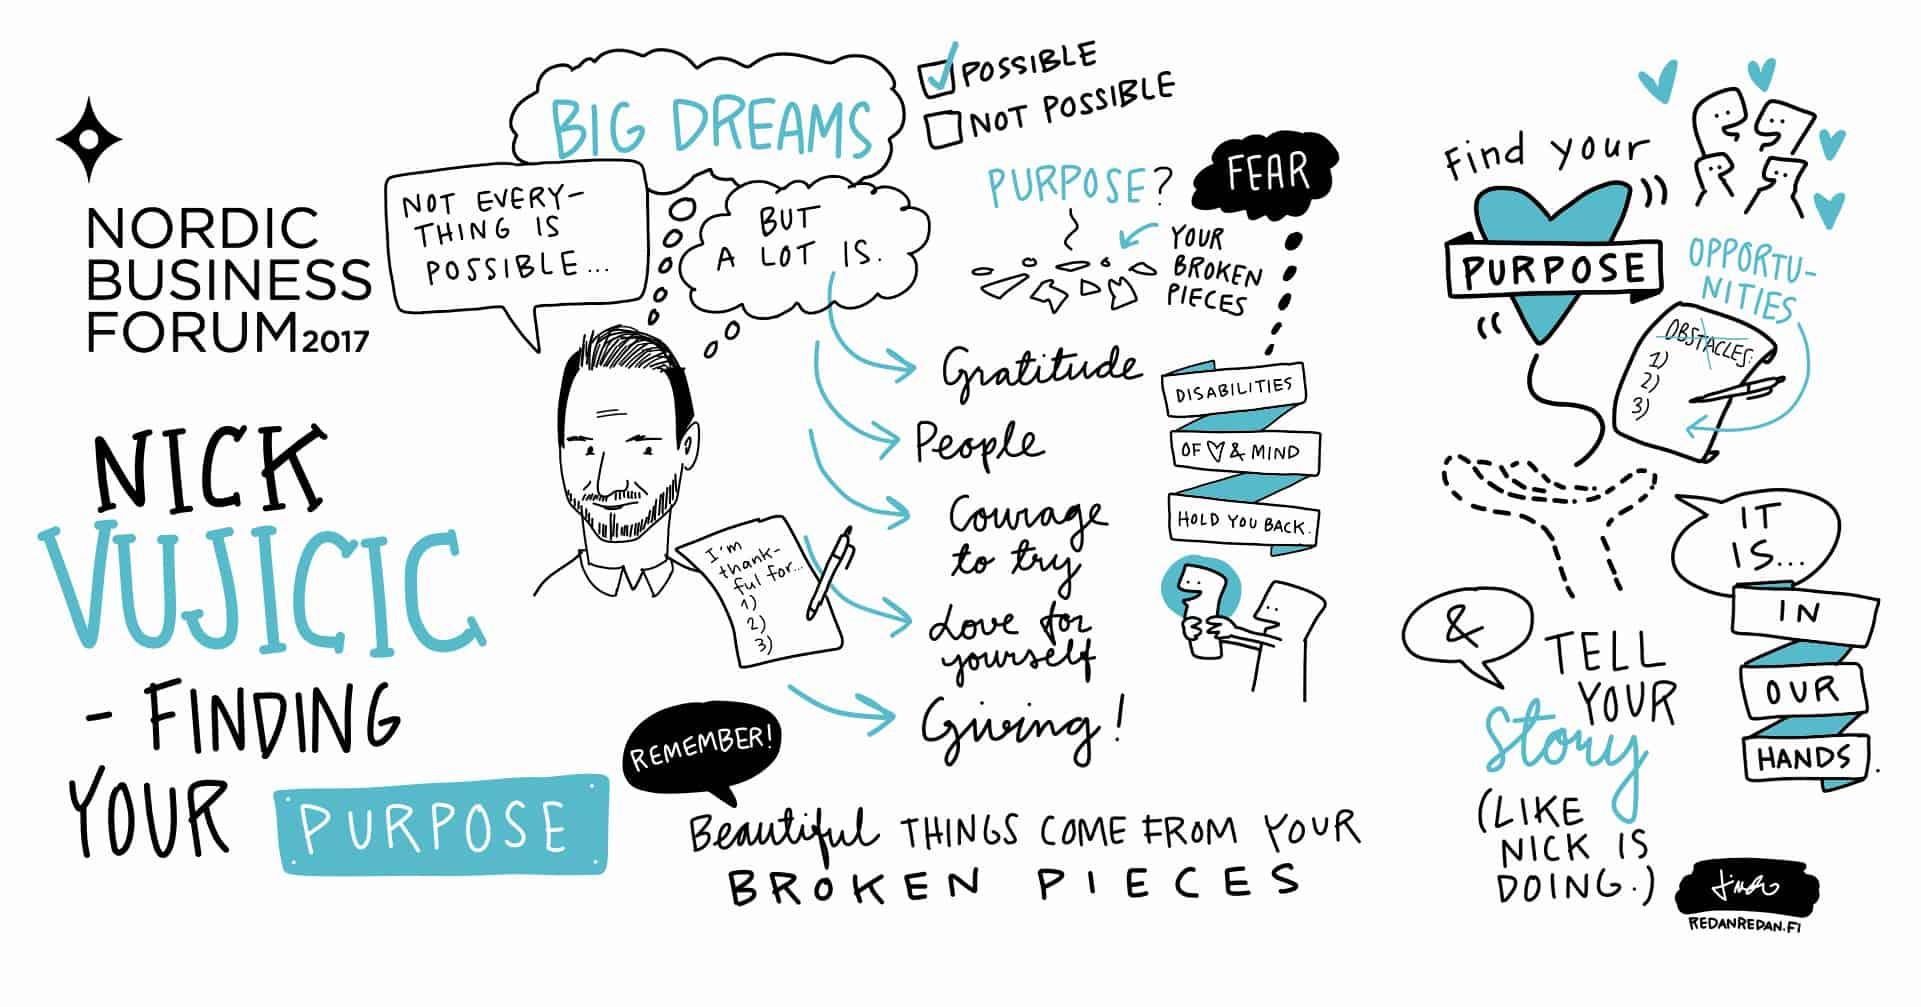 NORDIC
BUSINESS
FORUM2017
NICK
VUJICIC
- FINDING
YOUR PURPOSE
BIG DREAMS
NOT EVERY-
THING IS
POSSIBLE...
BUT
A LOT IS.
POSSIBLE
NOT POSSIBLE
Gratitude
People
Courage
to try
Love for
yourself
Giving!
I'm
thank-
ful for...
1)
2)
3)
PURPOSE?
YOUR
BROKEN
PIECES
FEAR
DISABILITIES
OF ♡ & MIND
HOLD YOU BACK.
REMEMBER!
Beautiful THINGS COME FROM YOUR
BROKEN PIECES
Find your
PURPOSE
OPPORTU-
NITIES
OBSTACLES:
1)
2)
3)
IT
IS...
IN
OUR
HANDS.
&
TELL
YOUR
Story
(LIKE
NICK IS
DOING.)
REDANREDAN.FI